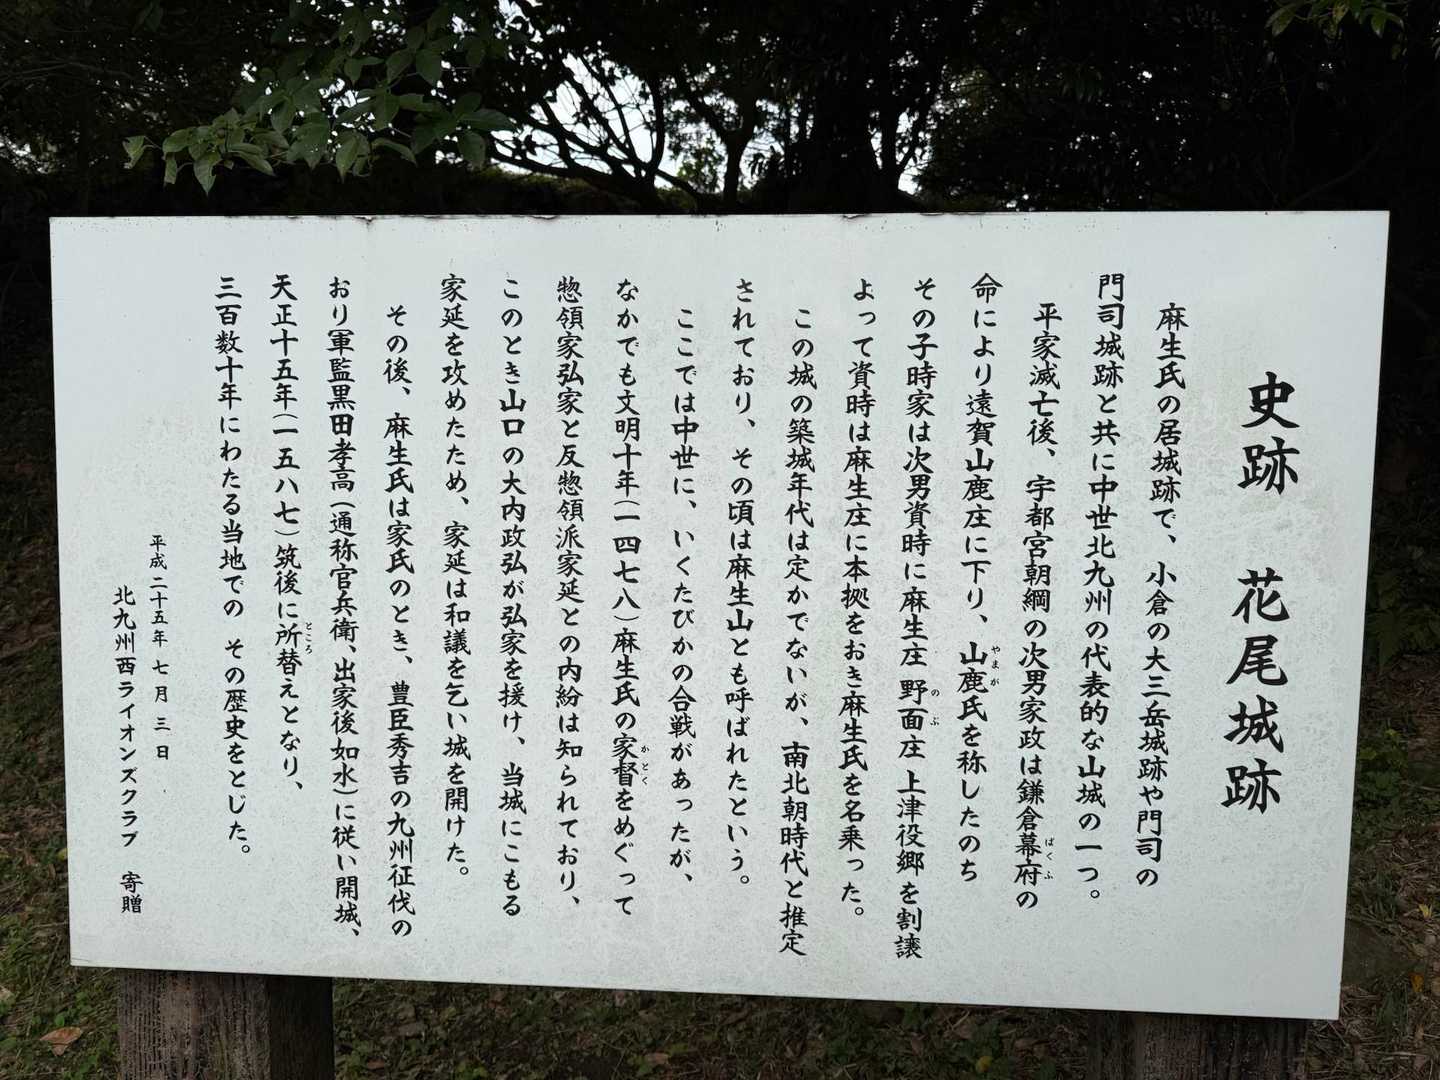 史跡　花尾城跡
麻生氏の居城跡で、小倉の大三岳城跡や門司の
門司城跡と共に中世北九州の代表的な山城の一つ。
平家滅亡後、宇都宮朝綱の次男家政は鎌倉幕府の
ばくふ
命により遠賀山鹿庄に下り、山鹿氏を称したのち
やまが
その子時家は次男資時に麻生庄 野面庄 上津役郷を割譲
のぶ
よって資時は麻生庄に本拠をおき麻生氏を名乗った。
この城の築城年代は定かでないが、南北朝時代と推定
されており、その頃は麻生山とも呼ばれたという。
ここでは中世に、いくたびかの合戦があったが、
なかでも文明十年(一四七八)麻生氏の家督をめぐって
かとく
惣領家弘家と反惣領派家延との内紛は知られており、
このとき山口の大内政弘が弘家を援け、当城にこもる
家延を攻めたため、家延は和議を乞い城を開けた。
その後、麻生氏は家氏のとき、豊臣秀吉の九州征伐の
おり軍監黒田孝高(通称官兵衛、出家後如水)に従い開城、
天正十五年(一五八七)筑後に所替えとなり、
ところ
三百数十年にわたる当地での その歴史をとじた。
平成二十五年七月三日
北九州西ライオンズクラブ　寄贈